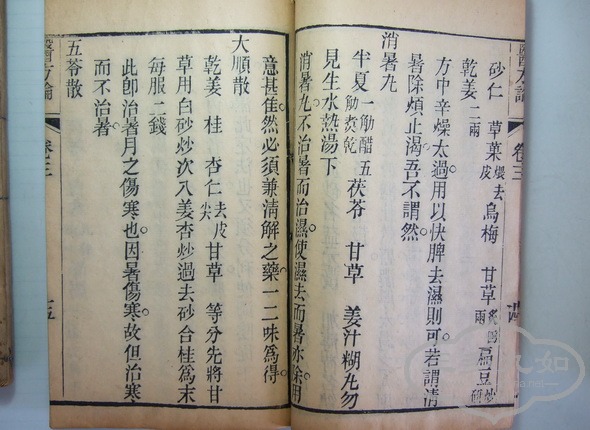 醫方論 卷三
砂仁 草菓煨去皮 烏梅 甘草 扁豆炒研
乾姜二兩
方中辛燥太過用以快脾去濕則可若謂清
暑除煩止渴吾不謂然
消暑丸
半夏一觔醋五觔煑乾 茯苓 甘草 姜汁糊丸勿
見生水熱湯下
消暑丸不治暑而治濕使濕去而暑亦除用
意甚佳然必須兼清解之藥一二味為得
大順散
乾姜 桂 杏仁去皮尖 甘草 等分先將甘
草用白砂炒次入姜杏炒過去砂合桂為末
每服二錢
此卽治暑月之傷寒也因暑傷寒故但治寒
而不治暑
五苓散
醫方論 卷三 十五